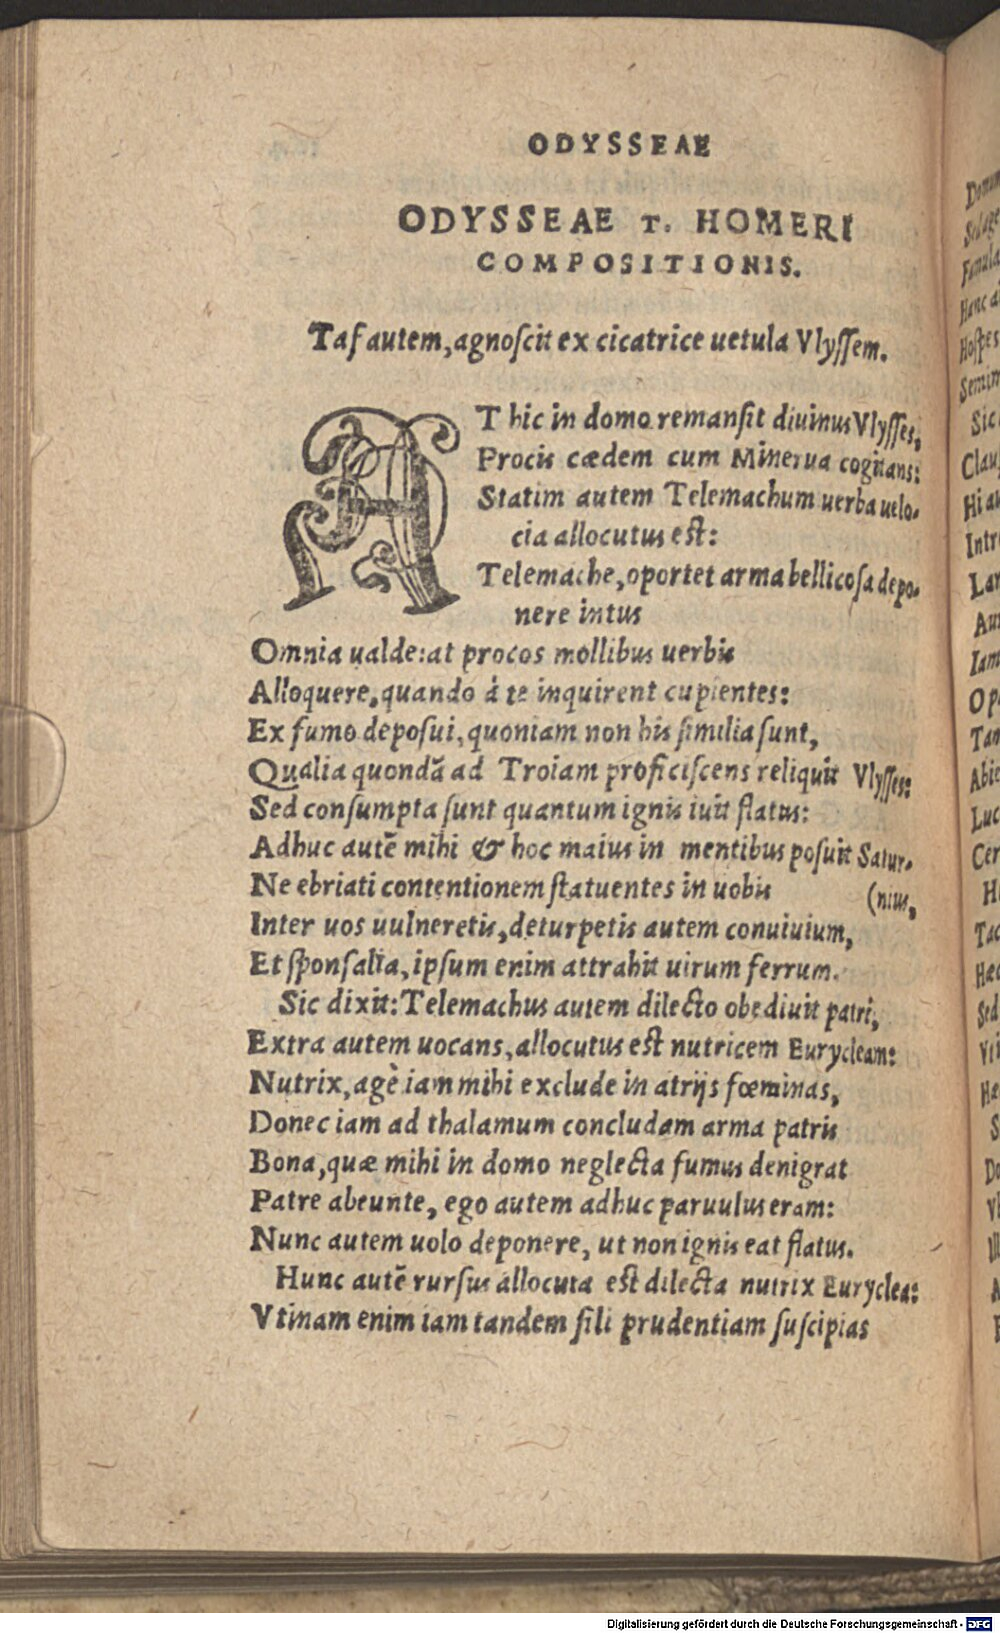 ODYSSEAE
ODYSSEAE T. HOMERI
COMPOSITIONIS.
Taf autem, agnoſcit ex cicatrice uetula Vlyſſem.
AT hic in domo remanſit diuinus Vlyſſes,
Procis cædem cum Minerua cogitans:
Statim autem Telemachum uerba uelo-
cia allocutus eſt:
Telemache, oportet arma bellicoſa depo-
nere intus
Omnia ualde: at procos mollibus uerbis
Alloquere, quando à te inquirent cupientes:
Ex fumo depoſui, quoniam non his ſimilia ſunt,
Qualia quondã ad Troiam proficiſcens reliquit Vlyſſes:
Sed conſumpta ſunt quantum ignis iuit flatus:
Adhuc autẽ mihi & hoc maius in mentibus poſuit Satur-
Ne ebriati contentionem ſtatuentes in uobis (nius,
Inter uos uulneretis, deturpetis autem conuiuium,
Et ſponſalia, ipſum enim attrahit uirum ferrum.
Sic dixit: Telemachus autem dilecto obediuit patri,
Extra autem uocans, allocutus eſt nutricem Eurycleam:
Nutrix, agè iam mihi exclude in atrijs fœminas,
Donec iam ad thalamum concludam arma patris
Bona, quæ mihi in domo neglecta fumus denigrat
Patre abeunte, ego autem adhuc paruulus eram:
Nunc autem uolo deponere, ut non ignis eat flatus.
Hunc autẽ rurſus allocuta eſt dilecta nutrix Euryclea:
Vtinam enim iam tandem fili prudentiam ſuſcipias
Digitalisierung gefördert durch die Deutsche Forschungsgemeinschaft - DFG